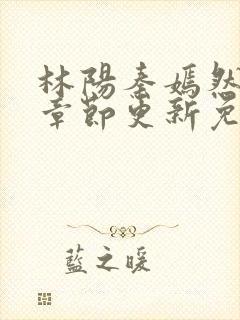 林陽秦嫣然
章節更新免
藍之暖